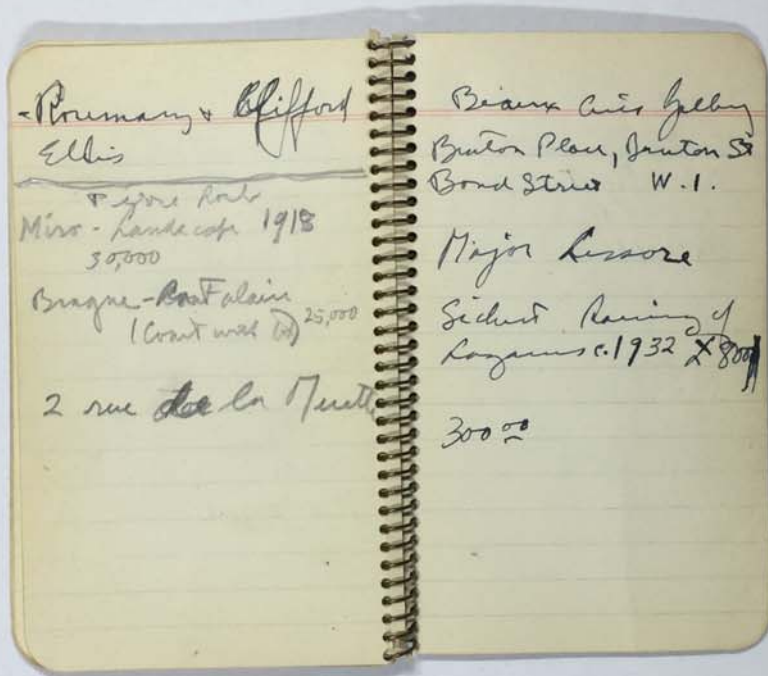 - Rosemary & Clifford
Ellis
Pierre Loeb
Miro - Landscape 1918
30,000
Braque -
(Count with 25,000
2 rue de la Muette
Beaux Arts Gallery
Bruton Place, Bruton St
Bond Street W.1.
Major Lessore
Sickert Raising of
Lazarus c.1932 £800
300 00